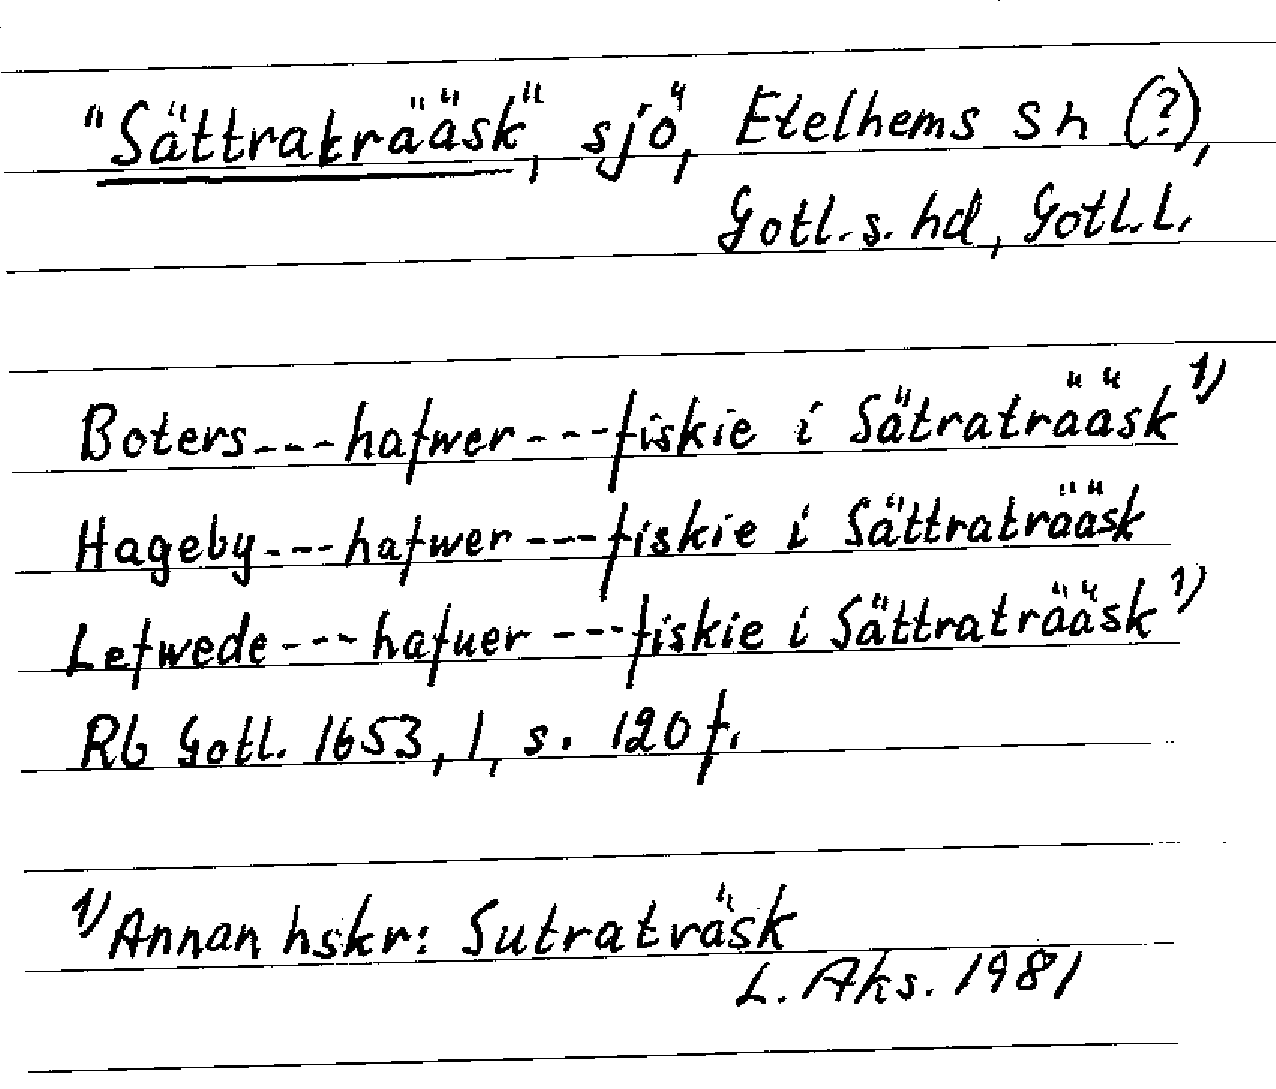 "Sättraträäsk", sjö, Etelhems sn (?),
Gotl. s. hd, Gotl. l.
Boters---hafwer---fiskie i Sätraträäsk 1)
Hageby---hafwer---fiskie i Sättraträäsk
Lefwede---hafuer---fiskie i Sättraträäsk 1)
Rb Gotl. 1653, 1, s. 120 f.
1) Annan hskr: Sutraträsk
L. Aks. 1981